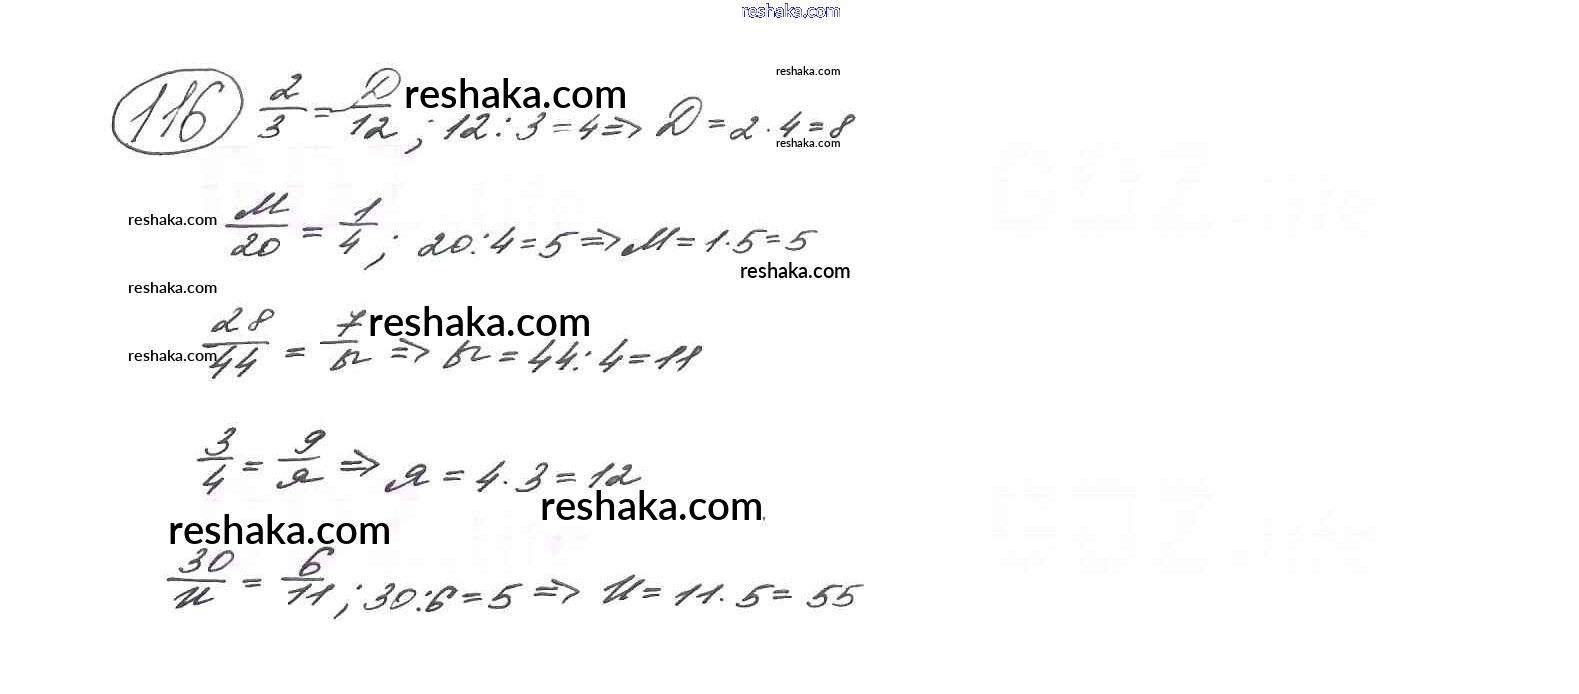 reshaka.com
reshaka.com
116 2/3 = D/12 ; 12 : 3 = 4 ⇒ D = 2 · 4 = 8
reshaka.com
reshaka.com
reshaka.com
М/20 = 1/4 ; 20 : 4 = 5 ⇒ М = 1 · 5 = 5
reshaka.com
reshaka.com
reshaka.com
28/44 = 7/к ⇒ к = 44 : 4 = 11
reshaka.com
3/4 = 9/я ⇒ я = 4 · 3 = 12
reshaka.com
reshaka.com
30/и = 6/11 ; 30 : 6 = 5 ⇒ и = 11 · 5 = 55